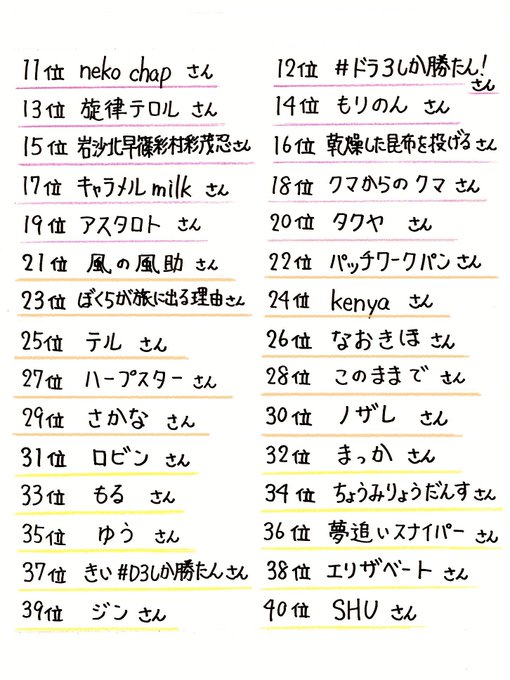 11位 neko chap さん
12位 #ドラ3しか勝たん!さん
13位 旋律テロル さん
14位 もりのん さん
15位 岩沙北早篠彩村彩茂忍さん
16位 乾燥した昆布を投げるさん
17位 キャラメルmilk さん
18位 クマからの クマ さん
19位 アスタロト さん
20位 タクヤ さん
21位 風の風助 さん
22位 パッチワークパンさん
23位 ぼくらが旅に出る理由さん
24位 kenya さん
25位 テル さん
26位 なおきほ さん
27位 ハープスター さん
28位 このままで さん
29位 さかな さん
30位 ノザレ さん
31位 ロビン さん
32位 まっか さん
33位 もる さん
34位 ちょうみりょうだんすさん
35位 ゆう さん
36位 夢追いスナイパー さん
37位 きい#D3しか勝たんさん
38位 エリザベート さん
39位 ジン さん
40位 SHU さん